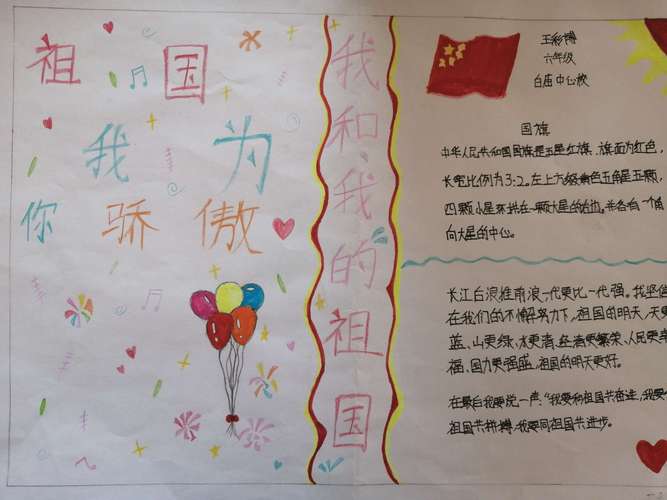 祖国
我为
你骄傲
我和我的祖国
王彩博
六年级
白庙中心校
国旗
中华人民共和国国旗是五星红旗、旗面为红色,
长宽比例为3:2。左上方缀黄色五角星五颗,
四颗小星环拱在一颗大星的右边。并各有一个角
向大星的中心。
长江后浪推前浪一代更比一代强。我坚信
在我们的不懈努力下,祖国的明天,天更
蓝、山更绿、水更清、经济更繁荣、人民更幸
福、国力更强盛,祖国的明天更好。
在最后我要说一声:“我要和祖国共奋进,我要
祖国共拼搏,我要同祖国共进步。